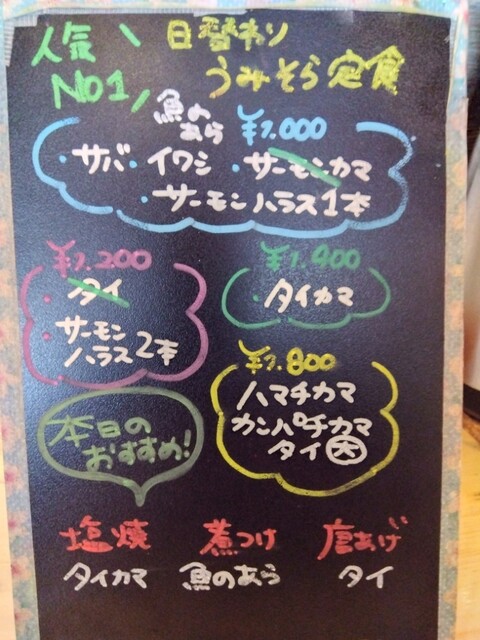 人気
No1
日替わり
うみそら定食
魚の
あら
¥1.000
・サバ・イワシ ・サーモンカマ
・サーモンハラス1本
¥1.200
・タイ
・サーモン
ハラス2本
¥1.400
・タイカマ
¥1.800
ハマチカマ
カンパチカマ
タイ大
本日の
おすすめ!
塩焼 煮つけ 唐あげ
タイカマ 魚のあら タイ